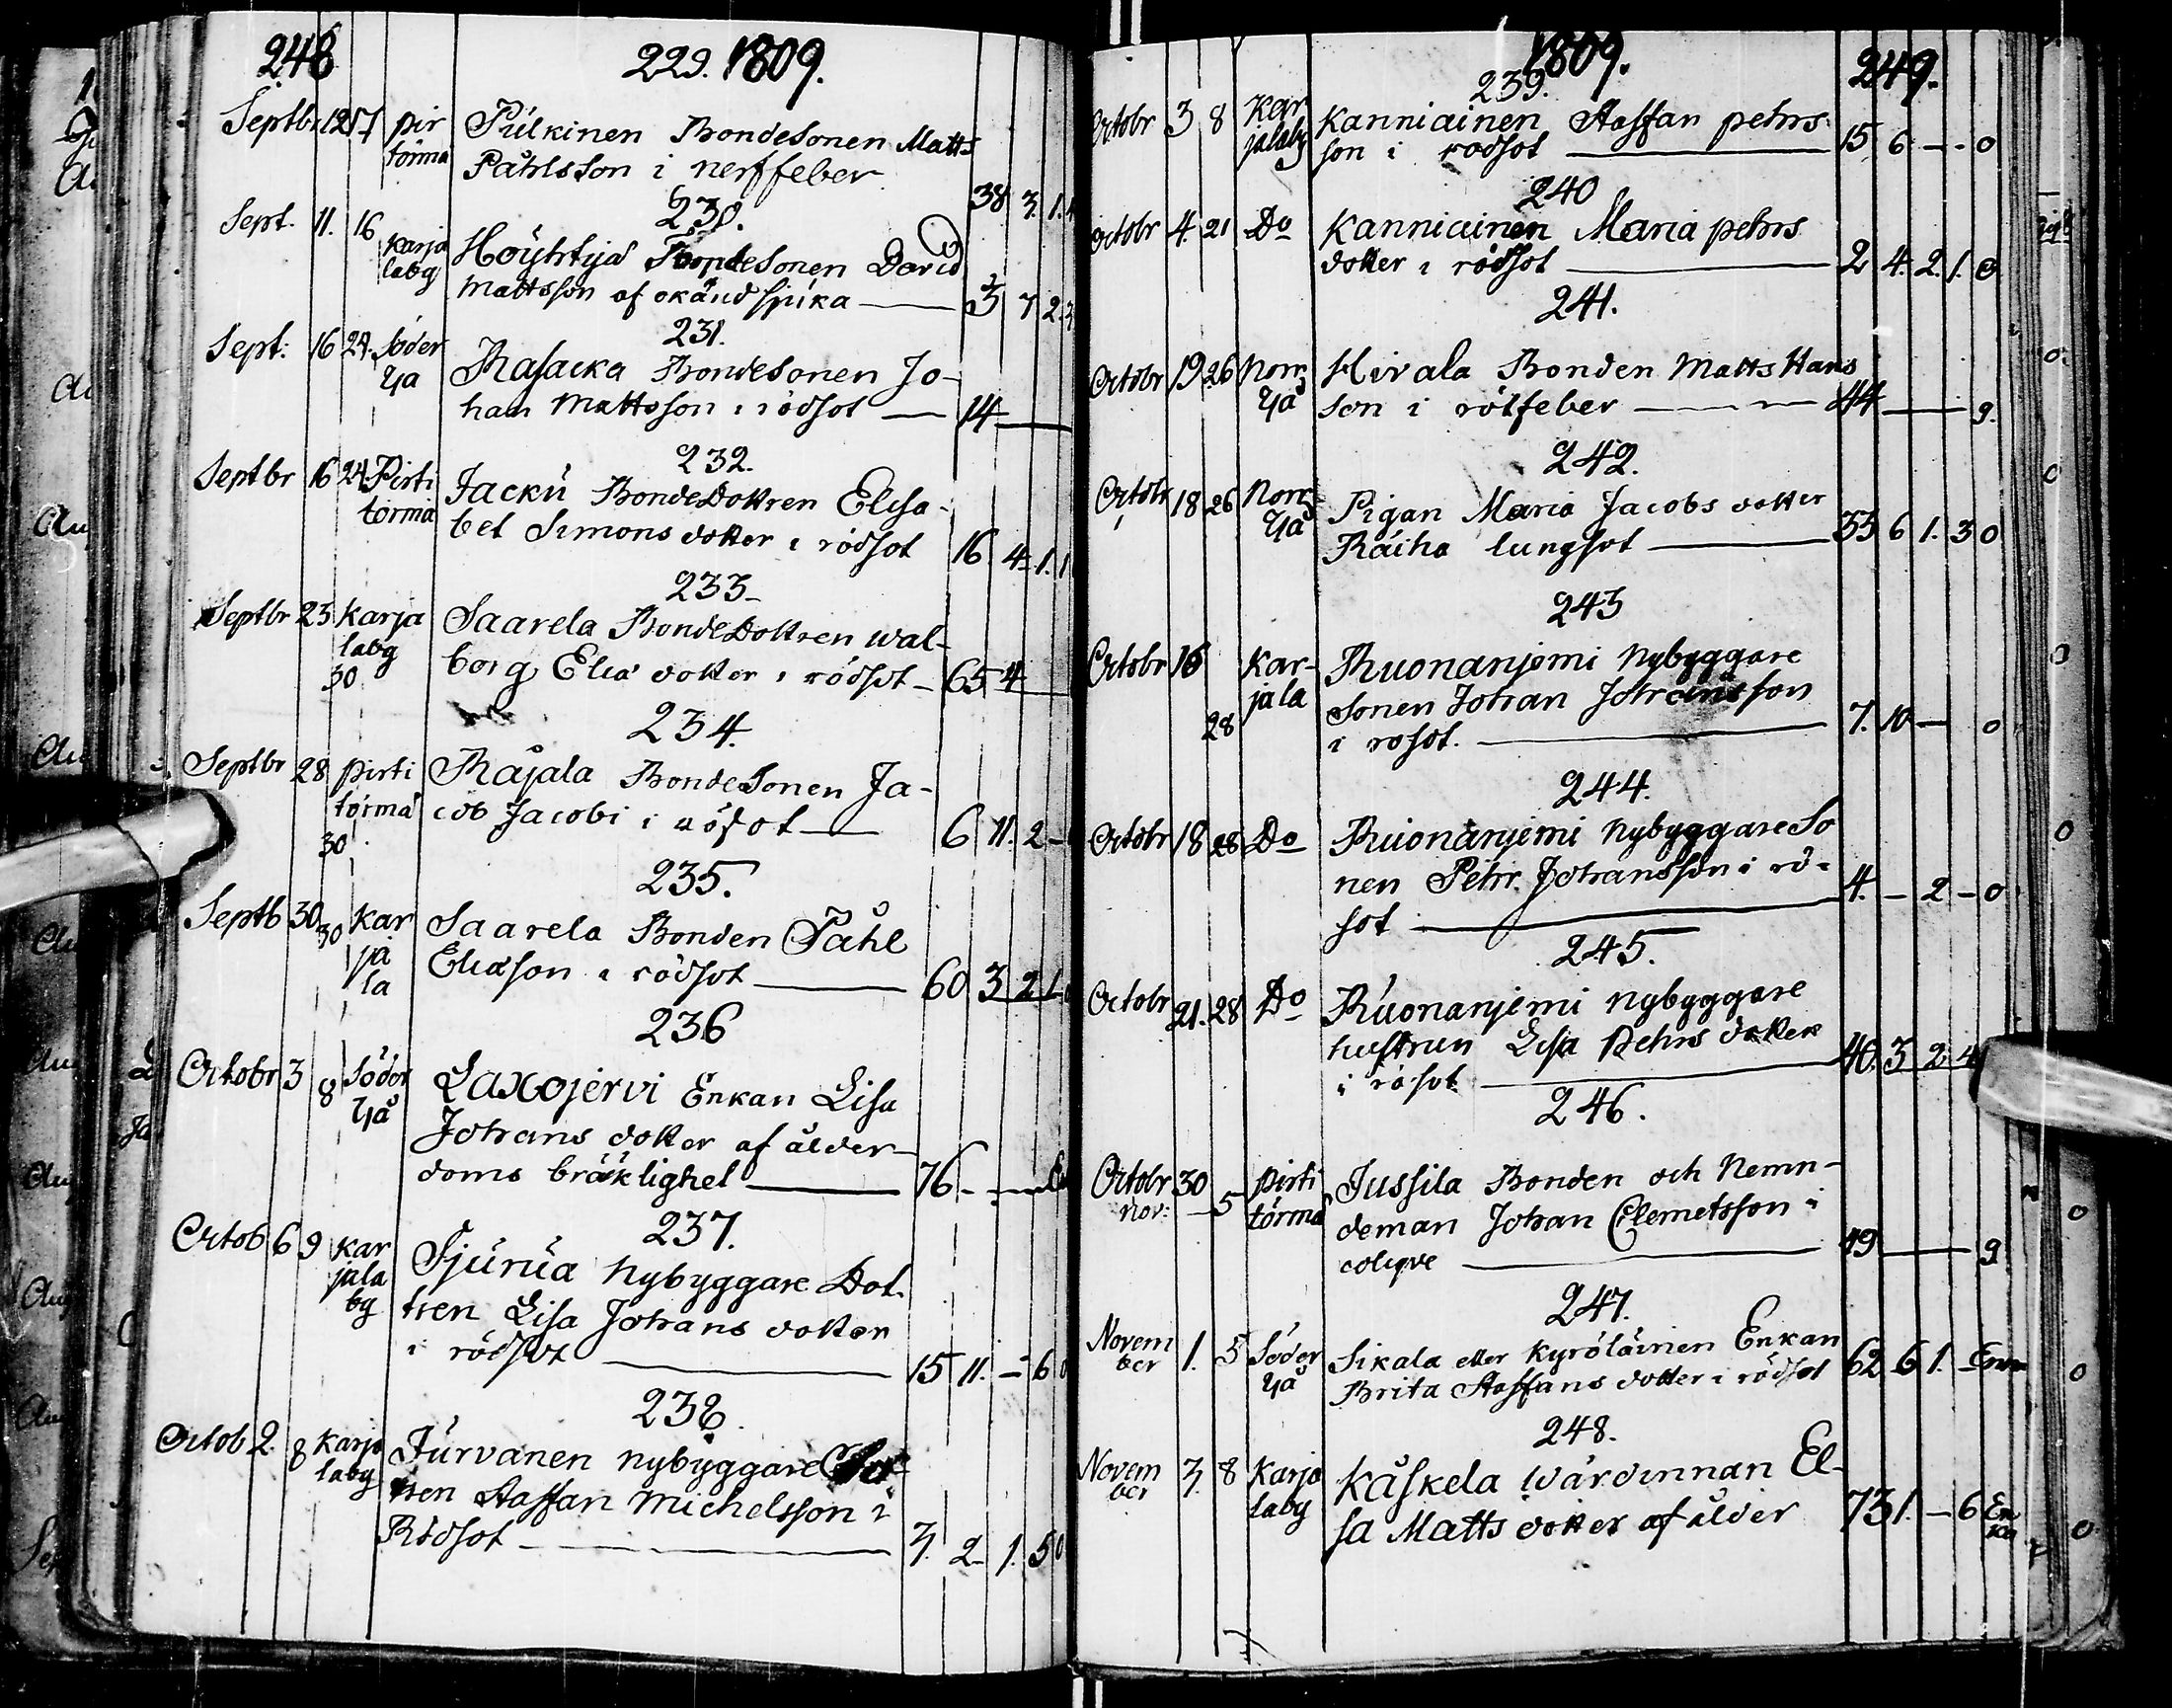 248 229. 1809.
Septbr 12 17 pir törmä Pulkinen Bondesonen Matts
Påhlsson i nerffeber 38 3. 1.
230.
Sept. 11. 16 Karja laby Höyhtyä Bondesonen David
Mattsson af okänd sjuka 3 7 2.
231.
Sept: 16 24. Söder Yå Rasacka Bondesonen Jo-
han Mattsson i rödsot 14
232.
Septbr 16 24 Pirti törmä Jacku BondeDottren Elisa-
bet Simons dotter i rödsot 16 4. 1. 1
233
Septbr 23 30 Karja laby Saarela BondeDottren Wal-
borg Eliæ dotter i rödsot 65 4
234.
Septbr 28 30 pirti törmä Rajala BondeSonen Ja-
cob Jacobi i rösot 6 11. 2
235.
Septb 30 30 Kar ja la Saarela Bonden Påhl
Eliæson i rödsot 60 3 2 1
236
Octobr 3 8 Söder Yå Laxojervi Enkan Lisa
Johans dotter af ålder-
doms bräklighet 76
237.
Octob 6 9 Kar jala by Tjurua Nybyggare Dot-
tren Lisa Johans dotter
i rödsot 15 11. - 6
238.
Octob 2. 8 Karja laby Turvanen nybyggare
Staffan Michelsson i
Rödsot 7. 2 1. 5 0
1809. 249.
239.
Octobr 3 8 Kar jalaby Kanniainen Staffan pehrs
son i rodsot 15 6 - - 0
240
Octobr 4. 21 Do Kanniainen Maria pehrs
dotter i rödsot 2 4. 2. 1. 0
241.
Octobr 19 26 Norr Yå Hirvala Bonden Matts Hans
son i rötfeber 44 g.
242.
Octobr 18 26 Norr Yå Pigan Maria Jacobs dotter
Räihä lungsot 33 6 1. 3 0
243
Octobr 16 28 Kar- jala Ruonanjemi Nybyggare
Sonen Johan Johansson
i rosot. 7. 10 - 0
244.
Octobr 18 28 Do Ruonanjemi NybyggareSo
nen Pehr Johansson i rö-
sot 4. - 2 - 0
245.
Octobr 21. 28 Do Ruonanjemi Nybyggare
hustrun Lisa Pehrs dotter
i rösot 40. 3 2 4
246.
Octobr 30 Nov: 5 pirti törmä Jussila Bonden och Nemn-
deman Johan Clemetsson i
colique 49 g
247.
Novem ber 1. 5 Söder Yå Sikala eller Kyröläinen Enkan
Brita Staffans dotter i rödsot 62 6 1. -
248.
Novem ber 3. 8 Karja laby Käskela Wärdinnan El-
sa Matts dotter af ålder 73 1. - 6 En ka